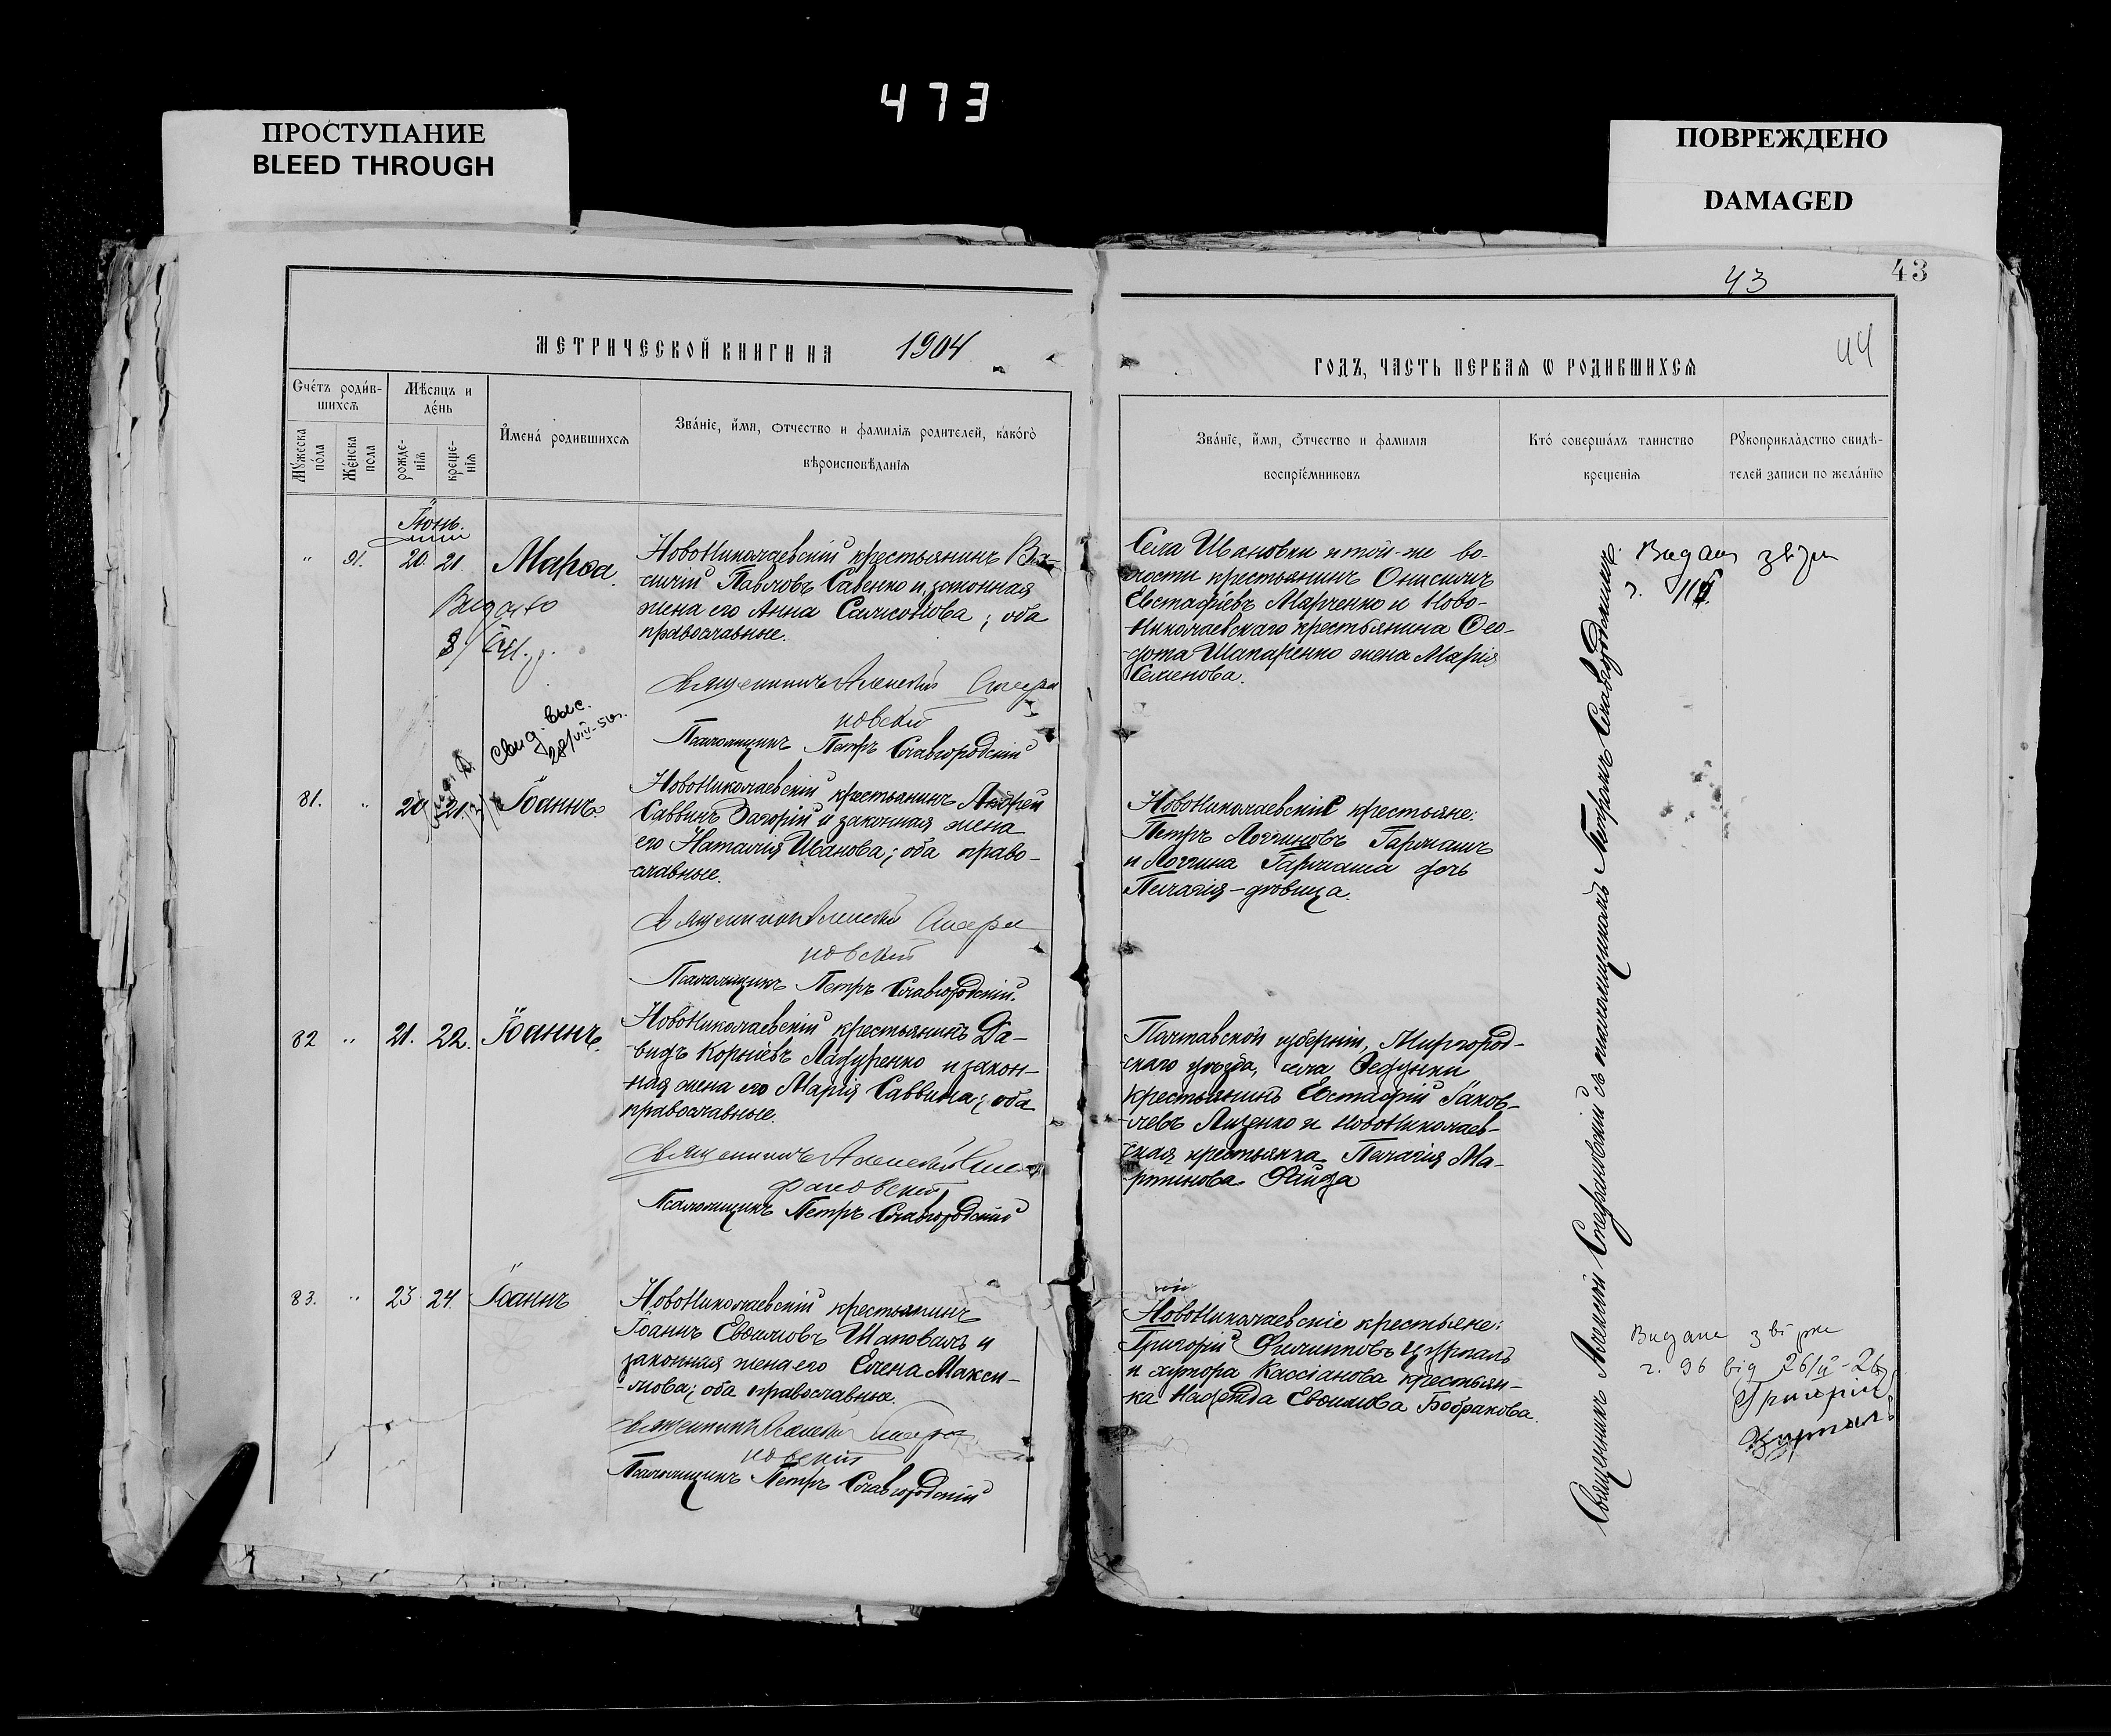 473
ПРОСТУПАНИЕ
BLEED THROUGH
ПОВРЕЖДЕНО
DAMAGED
43
43
44
МЕТРИЧЕСКОЙ КНИГИ НА 1904
ГОДЪ, ЧАСТЬ ПЕРВАЯ Ѡ РОДИВШИХСЯ
Счетъ родив-
шихся
Мѣсяцъ и
день
Мужеска
пола
Женска
пола
рожде-
нія
креще-
нія
Имена родившихся
Званіе, имя, отчество и фамилія родителей, какого
вѣроисповѣданія
Званіе, имя, отчество и фамилія
воспріемниковъ
Кто совершалъ таинство
крещенія
Рукоприкладство свидѣ-
телей записи по желанію
Іюнь.
" 91. 20. 21. Марѳа.
Новониколаевскій крестьянинъ Ва-
силій Павловъ Савенко и законная
жена его Анна Самсонова; оба
православные.
Священникъ Алексій Стефа
новскій
Псаломщикъ Петръ Славгородскій
Села Ивановки и той-же во-
лости крестьянинъ Онисимъ
Евстафіевъ Марченко и Ново-
николаевскаго крестьянина Ѳео-
дота Шапаренко жена Марія
Семенова.
Видано
Свид. выс.
81. " 20. 21. Іоаннъ.
Новониколаевскій крестьянинъ Андрей
Саввинъ Загорій и законная жена
его Наталія Иванова; оба право-
славные.
Священникъ Алексій Стефа
новскій
Псаломщикъ Петръ Славгородскій.
Новониколаевскіе крестьяне:
Петръ Логгиновъ Гармашъ
и Логгина Гармаша дочь
Пелагія-дѣвица.
82 " 21. 22. Іоаннъ.
Новониколаевскій крестьянинъ Да-
видъ Корніевъ Ладуренко и закон-
ная жена его Марія Саввина; оба
православные.
Священникъ Алексій Сте
фановскій
Псаломщикъ Петръ Славгородскій
Полтавской губерніи, Миргород-
скаго уѣзда, села Ѳедунки
крестьянинъ Евстафій Іаков-
левъ Луценко и новониколаев-
ская крестьянка Пелагія Ма-
ртинова
83. " 23 24. Іоаннъ
Новониколаевскій крестьянинъ
Іоаннъ Евѳимовъ Шаповалъ и
законная жена его Елена Макси-
мова; оба православные.
Священникъ Алексій Стефа
новскій
Псаломщикъ Петръ Славгородскій
Новониколаевскіе крестьяне:
Григорій Филипповъ Цурпалъ
и хутора Кассіанова крестьян-
ка Надежда Евѳимова Бобракова.
Священникъ Алексій Стефановскій съ псаломщикомъ Петромъ Славгородскимъ.
Видана
Видана звірка
ч. 96 від 26/II-26
Григорій
Цурпалъ